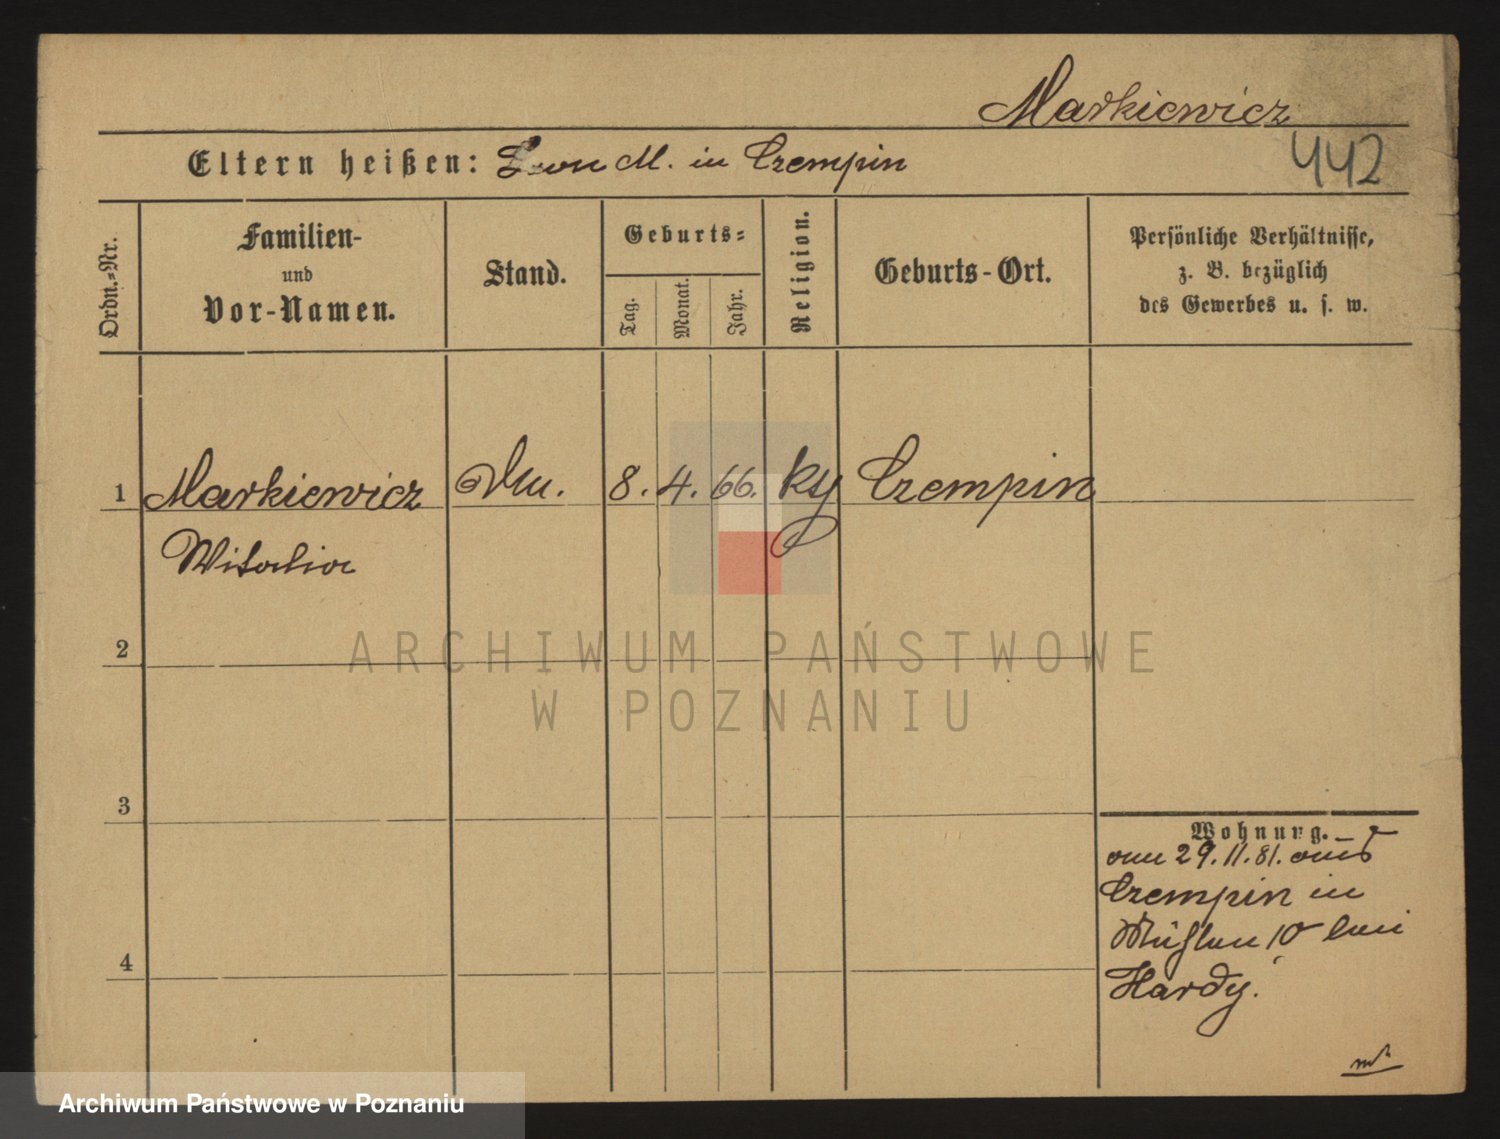 Markiewicz
Eltern heißen: Leon M. in Czempin
442
Ordn.=Nr.
Familien-
und
Vor-Namen.
Stand.
Geburts=
Tag.
Monat.
Jahr.
Religion.
Geburts-Ort.
Persönliche Verhältnisse,
z. B. bezüglich
des Gewerbes u. s. w.
1 Markiewicz 8. 4. 66. Czempin
Witalia
2
ARCHIWUM PAŃSTWOWE
W POZNANIU
3
Wohnung.
am 29.11.81. aus
Czempin in
Mühlen 10 bei
Hardy.
4
Archiwum Państwowe w Poznaniu